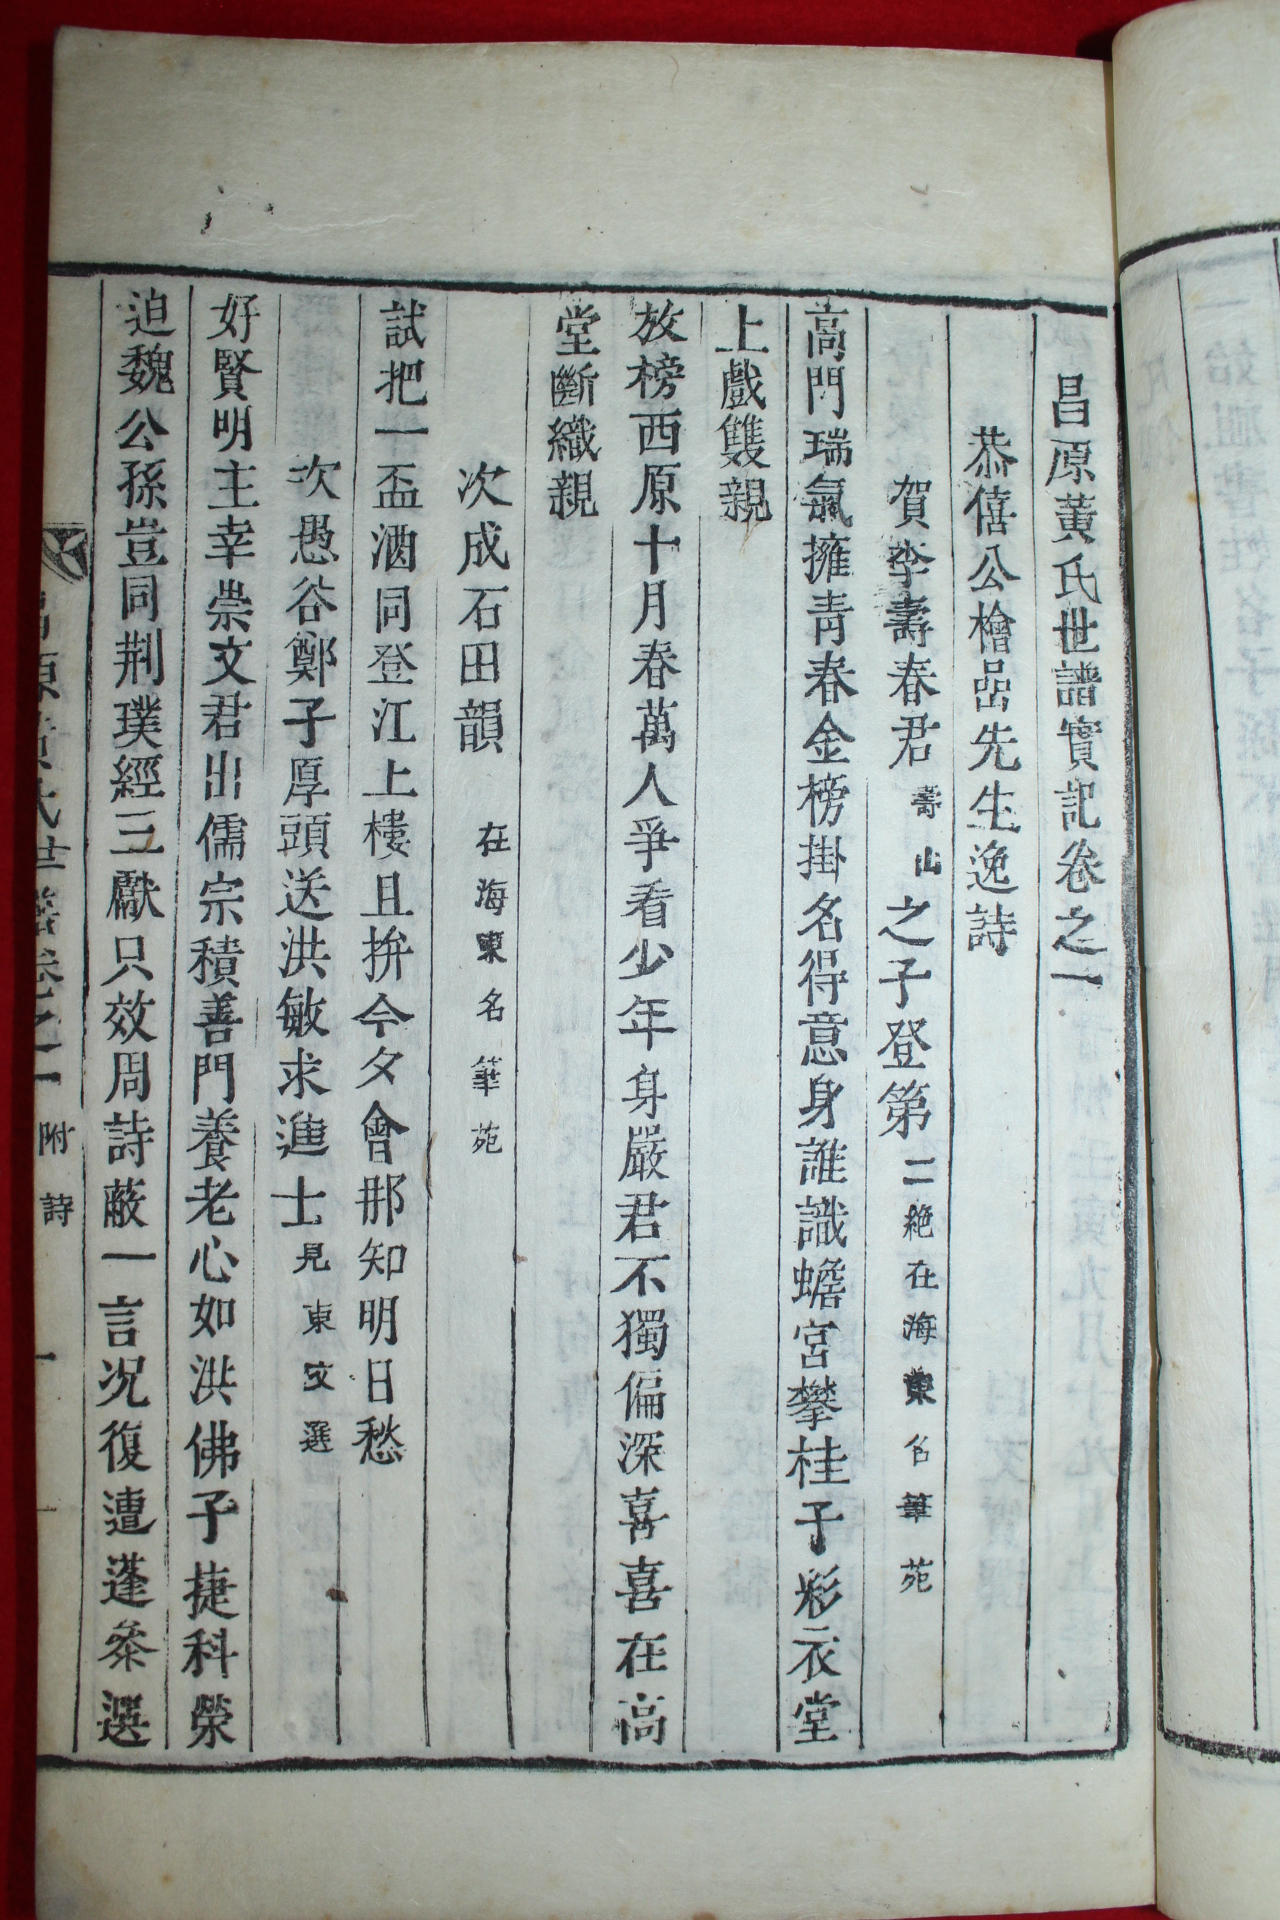 昌原黃氏世譜實記卷之一
恭僖公檜嵒先生逸詩
賀李壽春君壽山之子登第二絶在海東名筆苑
高門瑞氣擁靑春金榜掛名得意身誰識蟾宮攀桂子彩衣堂
上戲雙親
放榜西原十月春萬人爭看少年身嚴君不獨偏深喜喜在高
堂斷織親
次成石田韻在海東名筆苑
試把一盃酒同登江上樓且拚今夕會那知明日愁
次愚谷鄭子厚頭送洪敏求進士見東文選
好賢明主幸崇文君出儒宗積善門養老心如洪佛子捷科榮
迫魏公孫豈同荆璞經三獻只效周詩蔽一言况復遭蓬叅選
昌原黃氏世譜卷之一 附詩 一